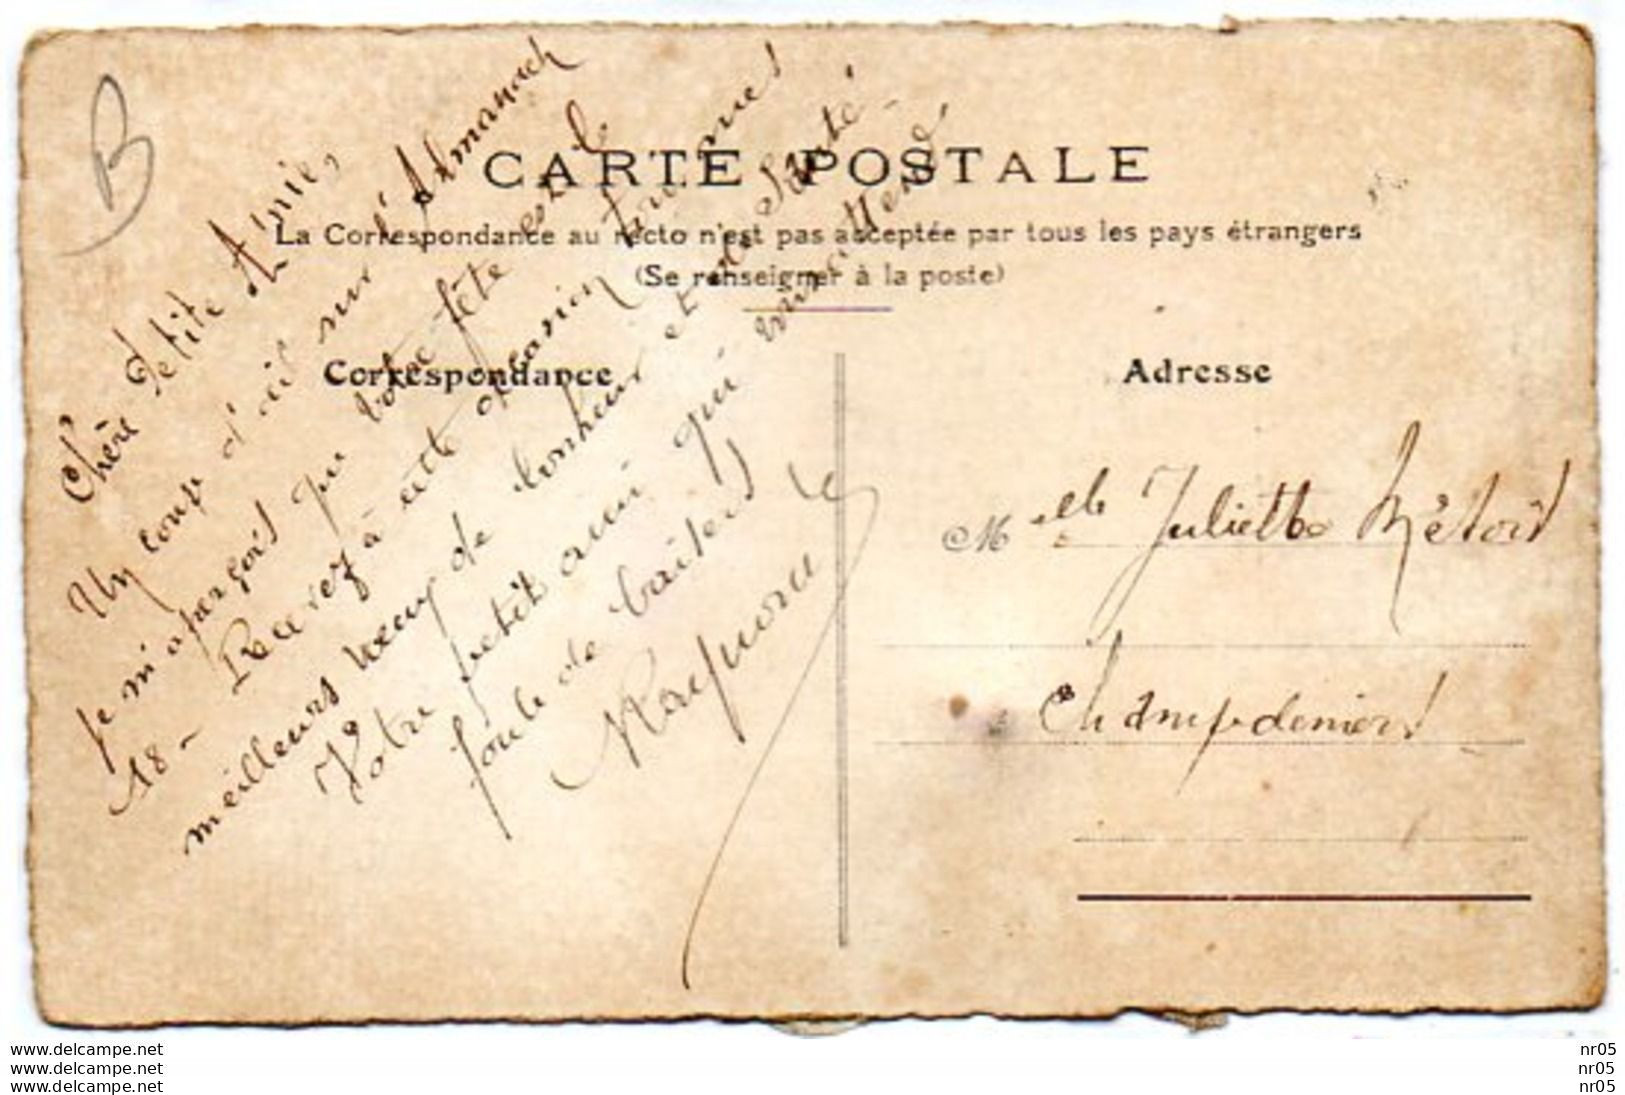 B
CARTE POSTALE
La Correspondance au recto n'est pas acceptée par tous les pays étrangers
(Se renseigner à la poste)
Correspondance
Chère Petite Amie,
Un coup d'œil sur l'Almanach
je m'aperçois que votre fête est le
18 - Recevez à cette occasion tous mes
meilleurs vœux de bonheur et de Santé -
Votre petit ami qui vous envoie
foule de baisers
Raymond
Adresse
Melle Juliette Métois
Champdeniers
www.delcampe.net
www.delcampe.net
www.delcampe.net
nr05
nr05
nr05